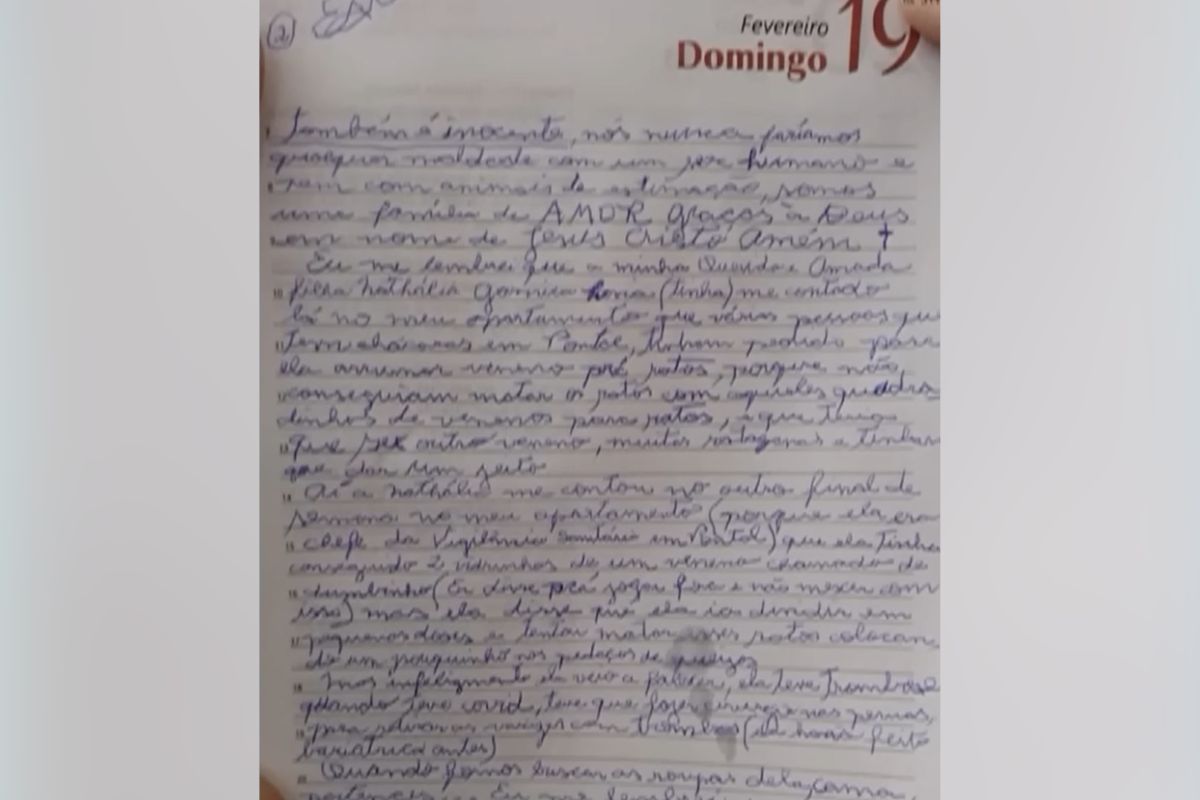 2
Fevereiro
Domingo
19
Também é inocente, nós nunca faríamos
qualquer maldade com um ser humano e
nem com animais de estimação, somos
uma família de AMOR graças à Deus
em nome de Jesus Cristo Amém †
Eu me lembrei que a minha Querida e Amada
filha Nathália Garnica (tinha) me contado
lá no meu apartamento que várias pessoas que
tem chácaras em Pontal, tinham pedido para
ela arrumar veneno prá ratos, porque não
conseguiam matar os ratos com aqueles quadra
dinhos de venenos para ratos, e que tinha
que ser outro veneno, muitas ratazanas e tinham
que dar um jeito
Aí a Nathália me contou no outro final de
semana no meu apartamento (porque ela era
chefe da Vigilância Sanitária em Pontal) que ela tinha
conseguido 2 vidrinhos de um veneno chamado de
chumbinho (Eu disse prá jogar fora e não mexer com
isso) mas ela disse que ela ia dividir em
pequenas doses e tentar matar esses ratos colocan
do um pouquinho nos pedaços de queijos
Mas infelizmente ela veio a falecer, ela teve Trombose
quando teve covid, teve que fazer cirurgia nas pernas,
para retirar as varizes com trombos (ela havia feito
bariátrica antes)
Quando fomos buscar as roupas dela, cama,
pertences Eu me